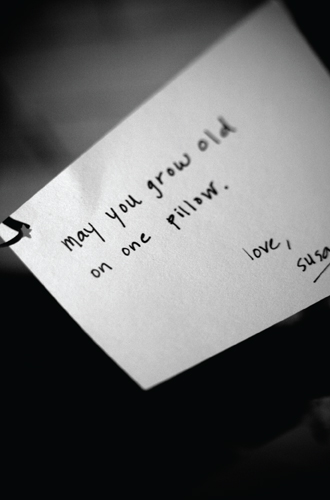 may you grow old
on one pillow.
love,
susa